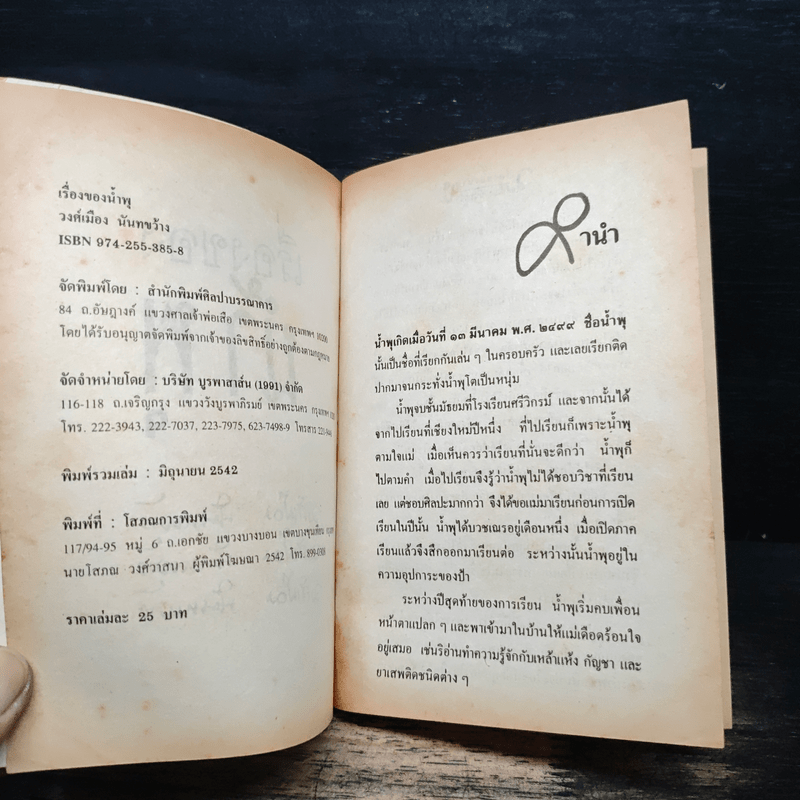 เรื่องของน้ำพุ
วงศ์เมือง นันทขว้าง
ISBN 974-255-385-8
จัดพิมพ์โดย : สำนักพิมพ์ศิลปาบรรณาคาร
84 ถ.อัษฎางค์ แขวงศาลเจ้าพ่อเสือ เขตพระนคร กรุงเทพฯ 10200
โดยได้รับอนุญาตจัดพิมพ์จากเจ้าของลิขสิทธิ์อย่างถูกต้องตามกฎหมาย
จัดจำหน่ายโดย : บริษัท บูรพาสาส์น (1991) จำกัด
116-118 ถ.เจริญกรุง แขวงวังบูรพาภิรมย์ เขตพระนคร กรุงเทพฯ
โทร. 222-3943, 222-7037, 223-7975, 623-7498-9 โทรสาร
พิมพ์รวมเล่ม : มิถุนายน 2542
พิมพ์ที่ : โสภณการพิมพ์
117/94-95 หมู่ 6 ถ.เอกชัย แขวงบางบอน เขตบางขุนเทียน
นายโสภณ วงศ์วาสนา ผู้พิมพ์โฆษณา 2542 โทร. 899-0308
ราคาเล่มละ 25 บาท
คำนำ
น้ำพุเกิดเมื่อวันที่ ๑๓ มีนาคม พ.ศ. ๒๔๙๙ ชื่อน้ำพุ
นั้นเป็นชื่อที่เรียกกันเล่น ๆ ในครอบครัว และเลยเรียกติด
ปากมาจนกระทั่งน้ำพุโตเป็นหนุ่ม
น้ำพุจบชั้นมัธยมที่โรงเรียนศรีวิกรม์ และจากนั้นได้
จากไปเรียนที่เชียงใหม่ปีหนึ่ง ที่ไปเรียนก็เพราะน้ำพุ
ตามใจแม่ เมื่อเห็นควรว่าเรียนที่นั่นจะดีกว่า น้ำพุก็
ไปตามคำ เมื่อไปเรียนจึงรู้ว่าน้ำพุไม่ได้ชอบวิชาที่เรียน
เลย แต่ชอบศิลปะมากกว่า จึงได้ขอแม่มาเรียนก่อนการเปิด
เรียนในปีนั้น น้ำพุได้บวชเณรอยู่เดือนหนึ่ง เมื่อเปิดภาค
เรียนแล้วจึงสึกออกมาเรียนต่อ ระหว่างนั้นน้ำพุอยู่ใน
ความอุปการะของป้า
ระหว่างปีสุดท้ายของการเรียน น้ำพุเริ่มคบเพื่อน
หน้าตาแปลก ๆ และพาเข้ามาในบ้านให้แม่เดือดร้อนใจ
อยู่เสมอ เช่นริอ่านทำความรู้จักกับเหล้าแห้ง กัญชา และ
ยาเสพติดชนิดต่าง ๆ